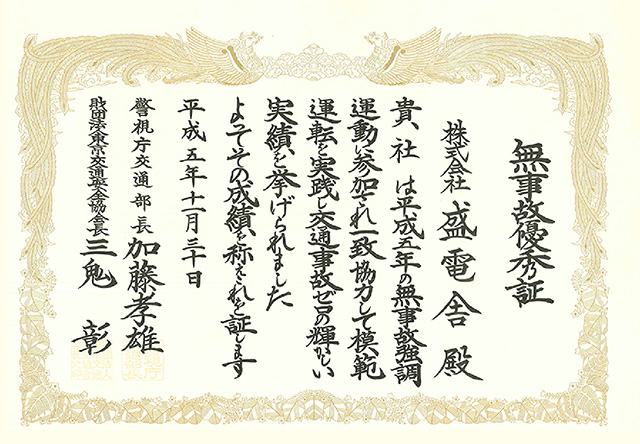 無事故優秀証
株式会社 盛電舎 殿
貴社は平成五年の無事故強調
運動に参加され一致協力して模範
運転を実践し交通事故ゼロの輝かしい
実績を挙げられました
よってその成績を称えこれを証します
平成五年十一月三十日
警視庁交通部長 加藤孝雄
財団法人東京交通安全協会長 三鬼 彰